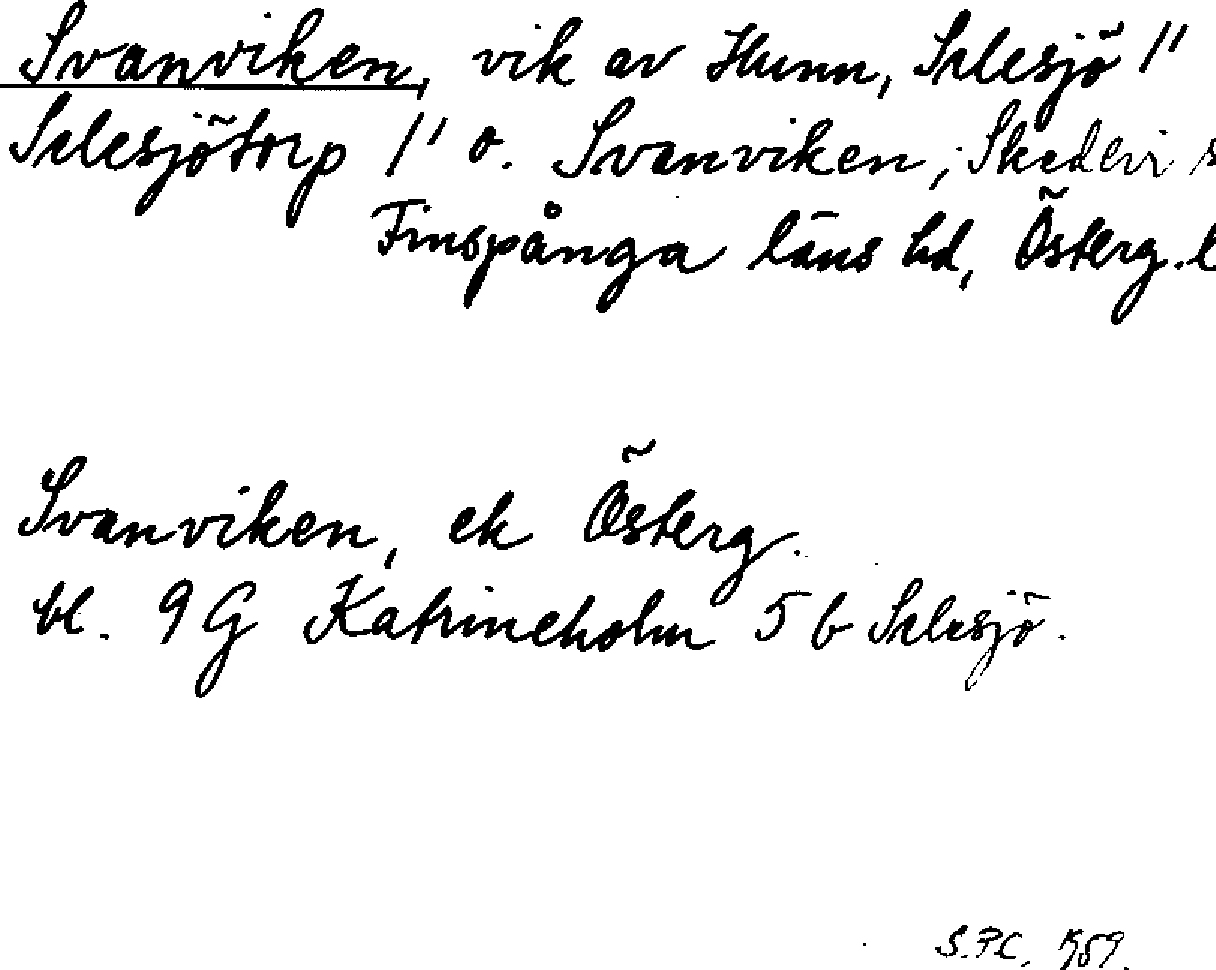 Svanviken, vik av Hunn, Sclesjö 1"
Sclesjötorp 1" o. Svanviken, Skedevi s
Finspånga läns hd, Österg. l
Svanviken, ek Österg.
bl. 9 G Katrineholm 5 b Sclesjö.
S.P.C. 1959.